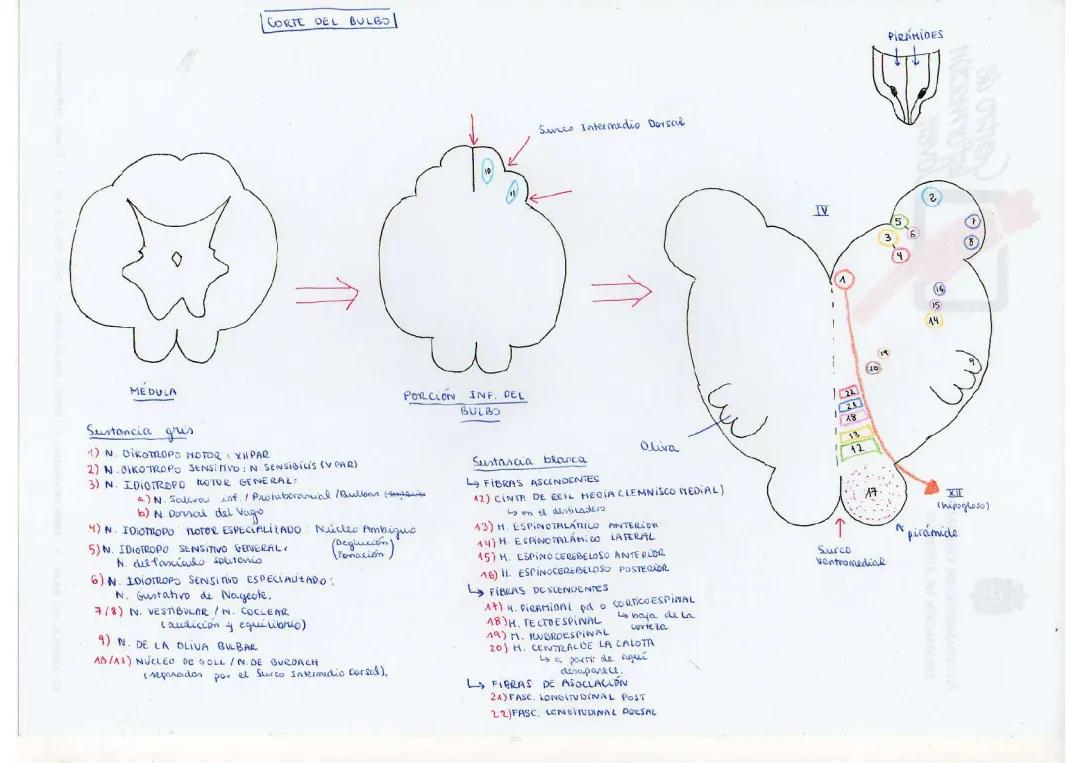 CORTE DEL BULBO
PIRÁMIDES
Surco Intermedio Dorsal
10
11
IV
2
5
6
7
3
8
4
1
16
15
14
19
20
9
22
21
18
13
12
17
MÉDULA
PORCIÓN INF. DEL
BULBO
Oliva
XII
(hipogloso)
pirámide
Surco
ventromedial
Sustancia gris
1) N. OIKOTROPO MOTOR: XII PAR
2) N. OIKOTROPO SENSITIVO: N. SENSIBILIS (V PAR)
3) N. IDIOTROPO MOTOR GENERAL:
a) N. Salival inf. / Protuberancial / Bulbar
b) N. Dorsal del Vago
4) N. IDIOTROPO MOTOR ESPECIALIZADO: Núcleo Ambiguo
(Deglución)
(Fonación)
5) N. IDIOTROPO SENSITIVO GENERAL.
N. del fascículo solitario
6) N. IDIOTROPO SENSITIVO ESPECIALIZADO:
N. Gustativo de Nageote.
7/8) N. VESTIBULAR / N. COCLEAR
(audición y equilibrio)
9) N. DE LA OLIVA BULBAR
10/11) NÚCLEO DE GOLL / N. DE BURDACH
(separados por el Surco Intermedio Dorsal).
Sustancia blanca
↳ FIBRAS ASCENDENTES
12) CINTA DE REIL MEDIA (LEMNISCO MEDIAL)
↳ en el desfiladero
13) H. ESPINOTALÁMICO ANTERIOR
14) H. ESPINOTALÁMICO LATERAL
15) H. ESPINOCEREBELOSO ANTERIOR
16) H. ESPINOCEREBELOSO POSTERIOR
↳ FIBRAS DESCENDENTES
17) H. PIRAMIDAL pd o CORTICOESPINAL
↳ baja de la
corteza
18) H. TECTOESPINAL
19) H. RUBROESPINAL
20) H. CENTRAL DE LA CALOTA
↳ a partir de aquí
desaparece.
↳ FIBRAS DE ASOCIACIÓN
21) FASC. LONGITUDINAL POST
22) FASC. LONGITUDINAL DORSAL